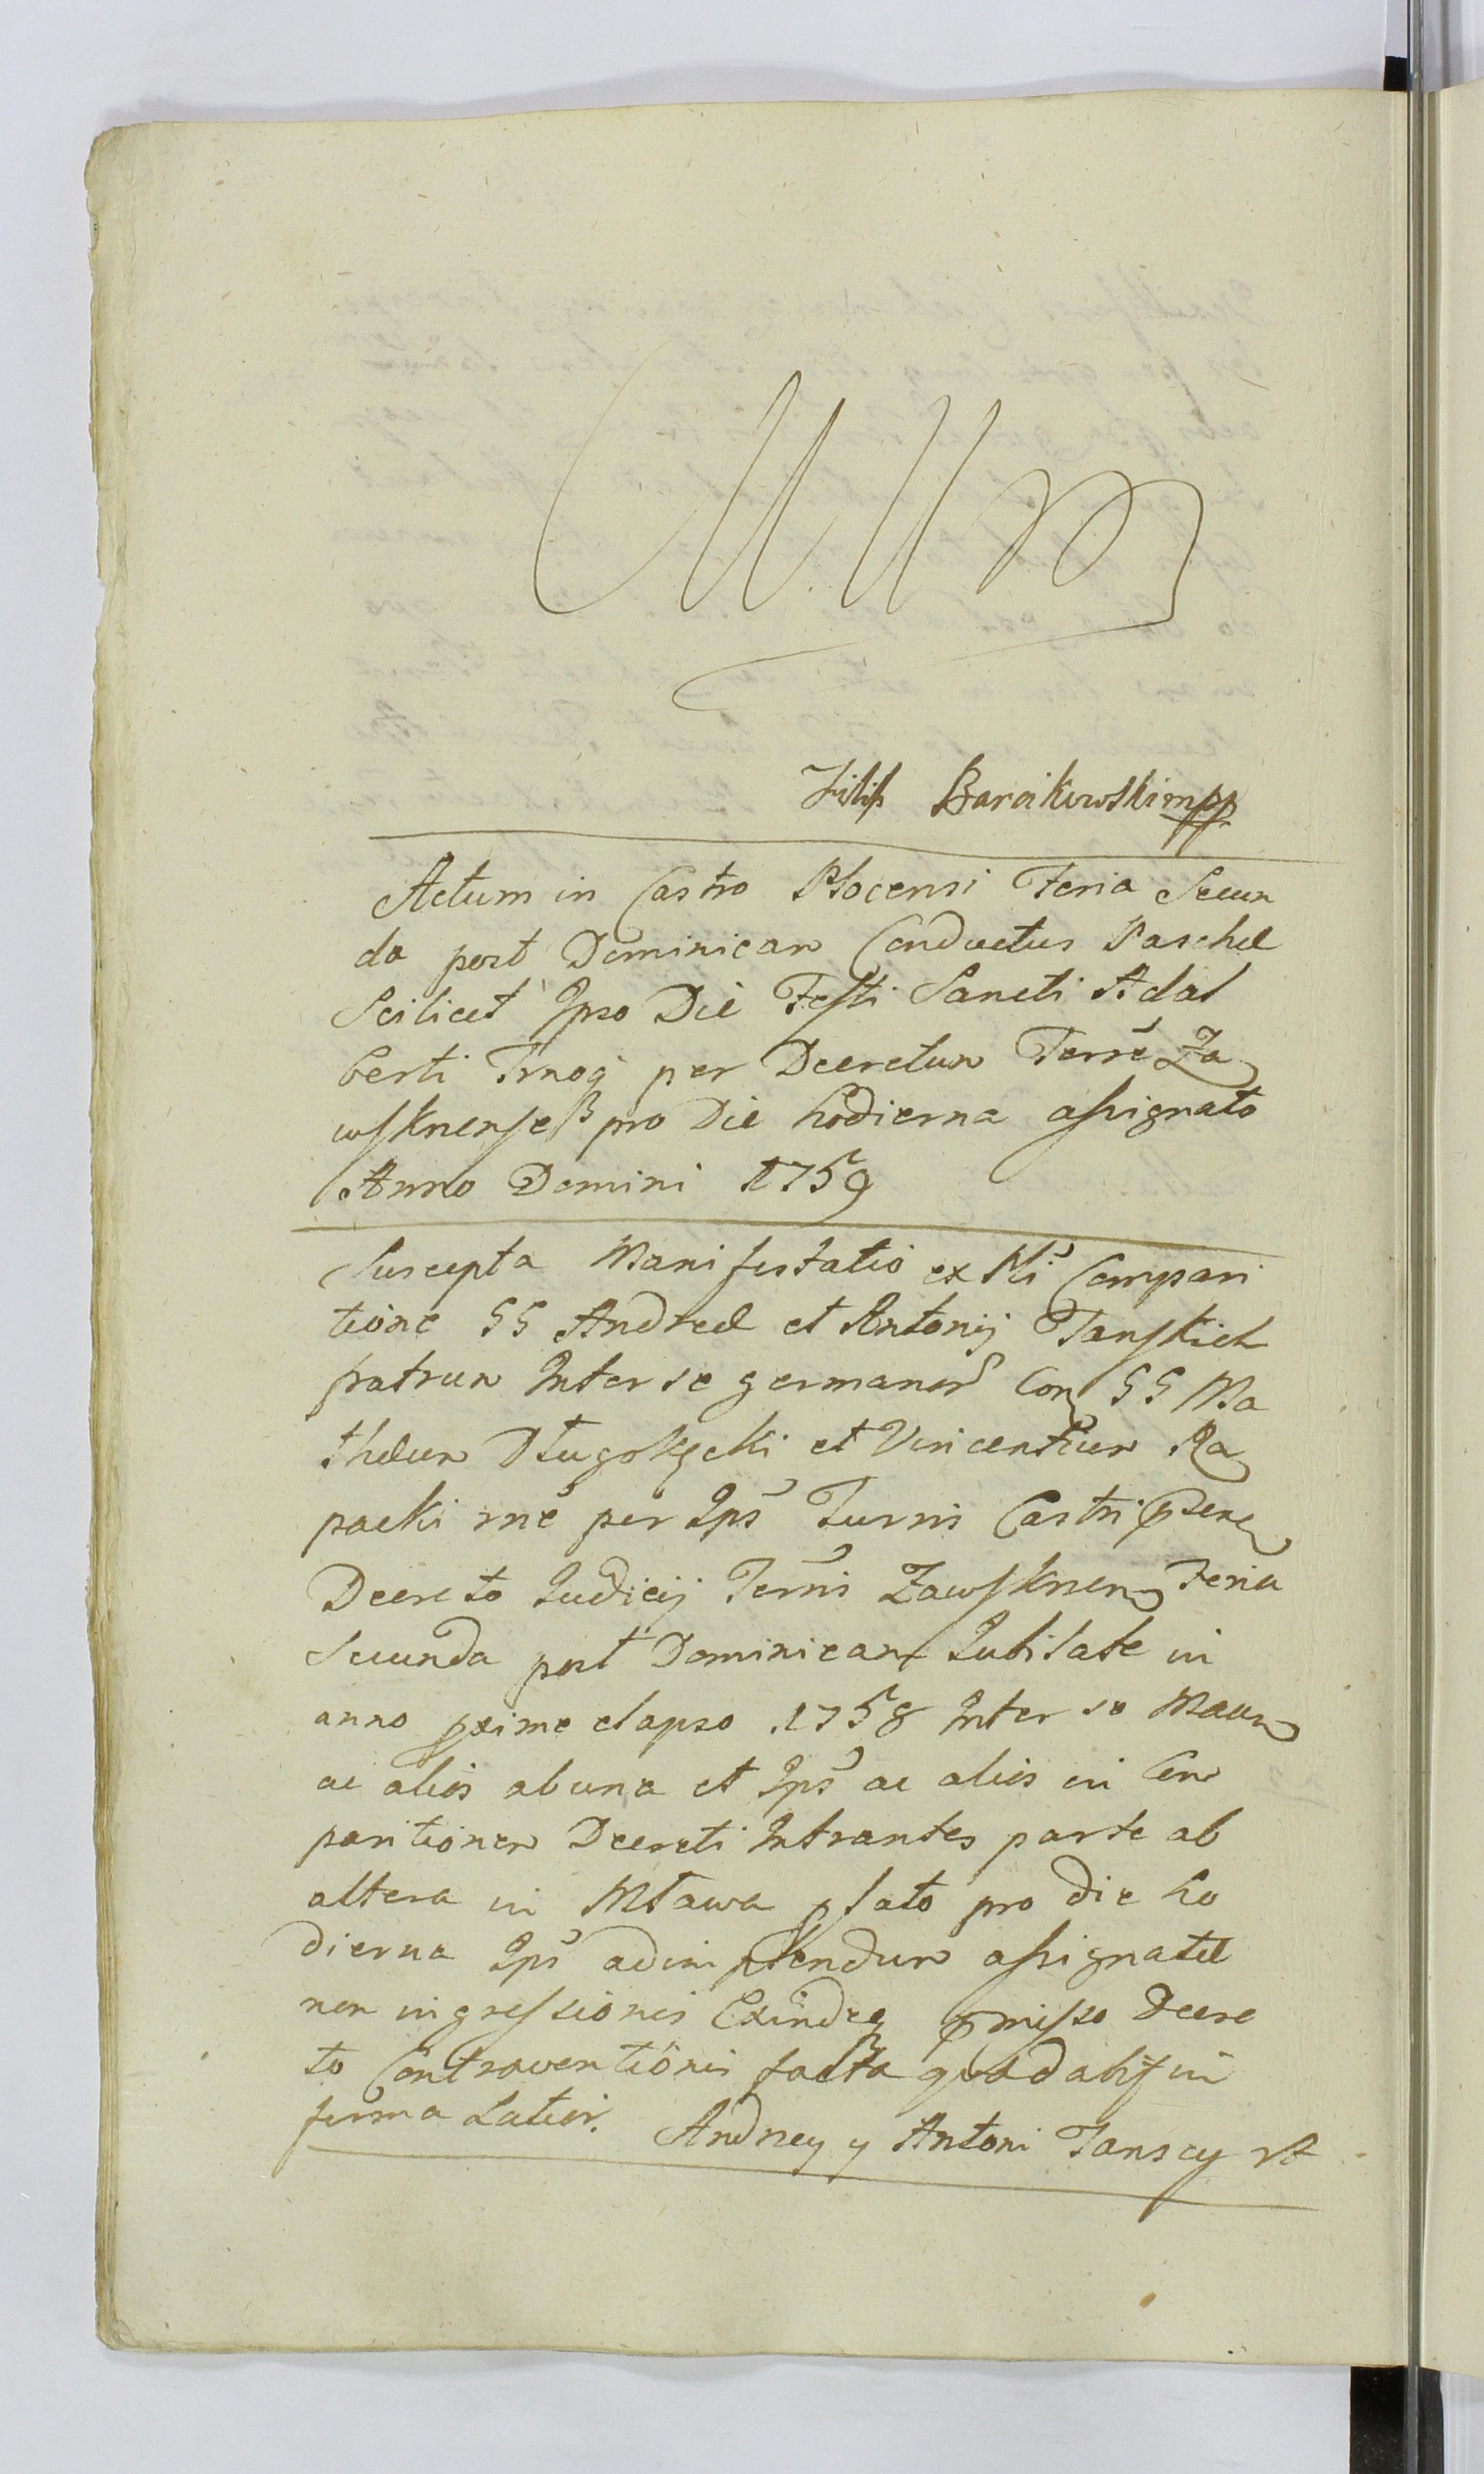 Filip Barcikowski mpp
Actum in Castro Plocensi Feria Secun
da post Dominicam Conductus Paschæ
Scilicet Ipso Die Festi Sancti Adal
berti Tmoq per Decretum Terrē Za
wskrense pro Die hodierna assignato
Anno Domini 1759
Suscepta Manifestatio ex Pli Compari
tione GG Andreæ et Antonij Tanskich
fratrum Inter se germanor Con GG Ma
thæum Długokęcki et Vincentium Ra
packi rne per Ips Turris Castri psene
Decreto Judicij Terris Zawskrnen Feria
Secunda post Dominicam Jubilate in
anno pxime elapso 1758 Inter se Maun
ac alios ab una et Ips ac alios in Com
paritionem Decreti Intrantes parte ab
altera in Mława plato pro die ho
dierna Ips adimplendum assignatæ
non ingressionis Exindeq pmisso Decre
to Contraventionis facta quad abs in
forma Latiori. Andrzey y Antoni Tanscy